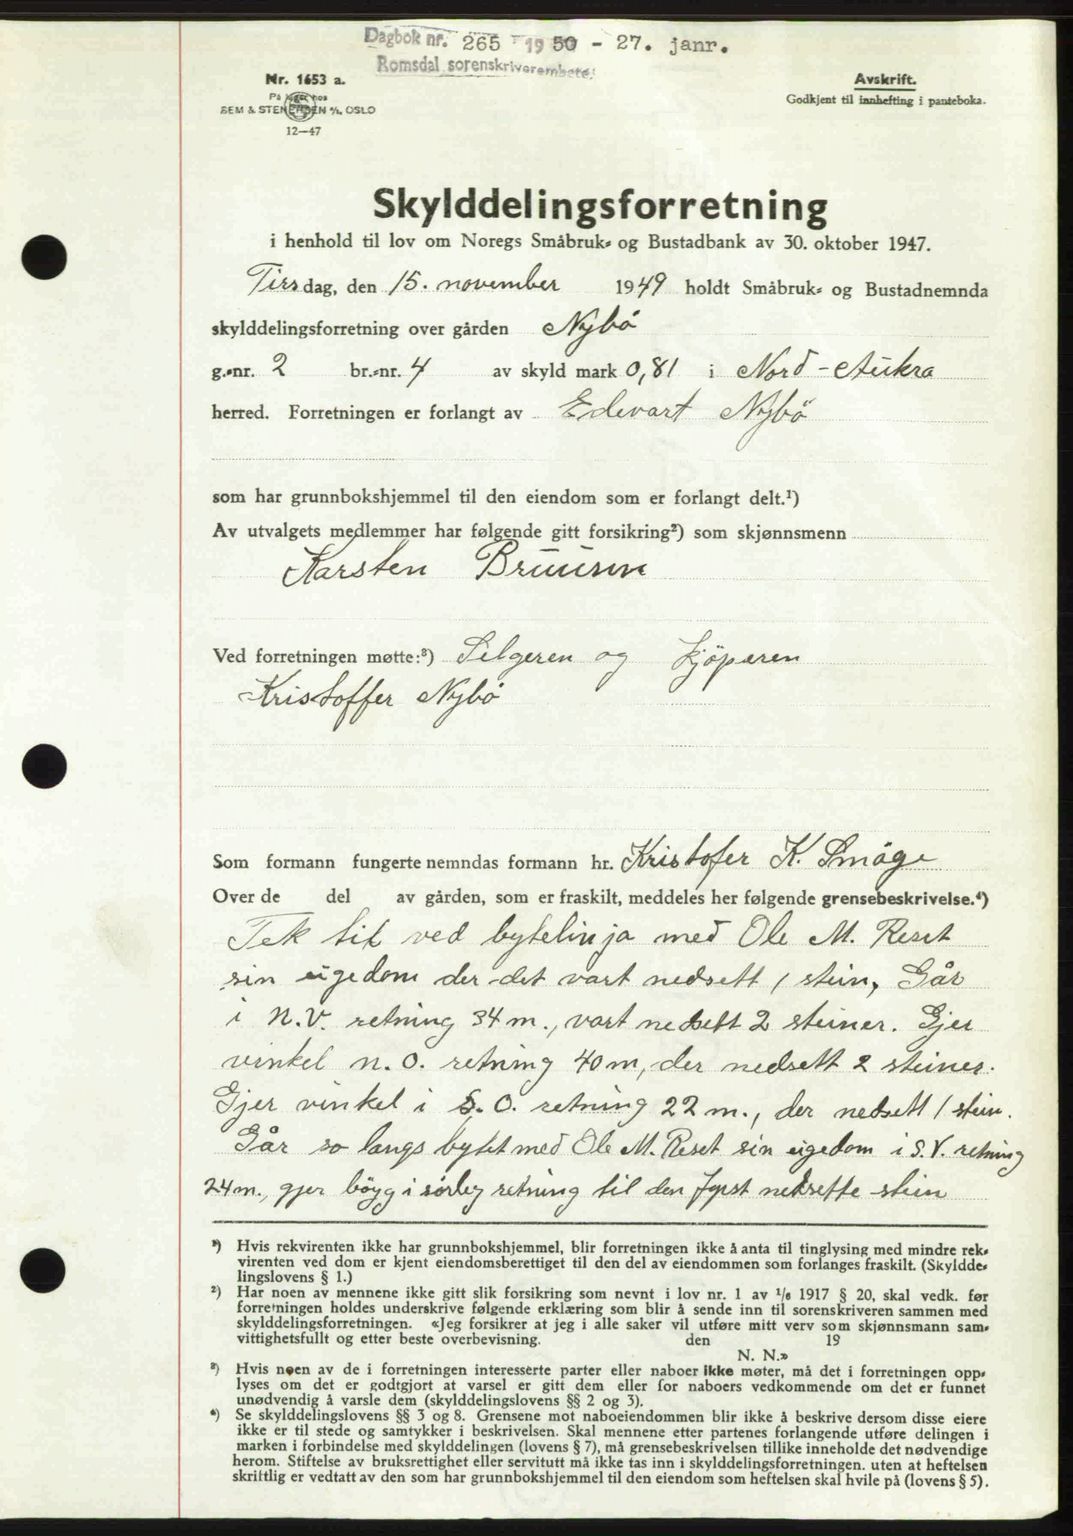 Dagbok nr. 265 1950 - 27. janr.
Romsdal sorenskriverembete.
Nr. 1653 a.
På lager hos
SEM & STENERSEN A/S, OSLO
12—47
Avskrift.
Godkjent til innhefting i panteboka.
Skylddelingsforretning
i henhold til lov om Noregs Småbruk- og Bustadbank av 30. oktober 1947.
Tirsdag, den 15. november 1949 holdt Småbruk- og Bustadnemnda
skylddelingsforretning over gården Nybö
g.-nr. 2 br.-nr. 4 av skyld mark 0,81 i Nord-Aukra
herred. Forretningen er forlangt av Edevart Nybö
som har grunnbokshjemmel til den eiendom som er forlangt delt.¹)
Av utvalgets medlemmer har følgende gitt forsikring²) som skjønnsmenn
Karsten Bruusen
Ved forretningen møtte:³) Selgeren og kjöperen
Kristoffer Nybö
Som formann fungerte nemndas formann hr. Kristofer K. Småge
Over de del av gården, som er fraskilt, meddeles her følgende grensebeskrivelse.⁴)
Tek til ved bytelinja med Ole M. Reset
sin eigedom der det vart nedsett 1 stein, Går
i N.V. retning 34 m., vart nedsett 2 steiner. Gjer
vinkel n.o. retning 40 m, der nedsett 2 steiner.
Gjer vinkel i S.O. retning 22 m., der nedsett 1 stein.
Går so langs bytet med Ole M. Reset sin eigedom i S.V. retning
24 m., gjer böyg i sörleg retning til den fyrst nedsette stein
¹) Hvis rekvirenten ikke har grunnbokshjemmel, blir forretningen ikke å anta til tinglysing med mindre rek-
virenten ved dom er kjent eiendomsberettiget til den del av eiendommen som forlanges fraskilt. (Skyldde-
lingslovens § 1.)
²) Har noen av mennene ikke gitt slik forsikring som nevnt i lov nr. 1 av ¹/₆ 1917 § 20, skal vedk. før
forretningen holdes underskrive følgende erklæring som blir å sende inn til sorenskriveren sammen med
skylddelingsforretningen. «Jeg forsikrer at jeg i alle saker vil utføre mitt verv som skjønnsmann sam-
vittighetsfullt og etter beste overbevisning. den 19
N. N.»
³) Hvis noen av de i forretningen interesserte parter eller naboer ikke møter, må det i forretningen opp-
lyses om det er godtgjort at varsel er gitt dem eller for naboers vedkommende om det er funnet
unødvendig å varsle dem (skylddelingslovens §§ 2 og 3).
⁴) Se skylddelingslovens §§ 3 og 8. Grensene mot naboeiendommen blir ikke å beskrive dersom disse eiere
ikke er til stede og samtykker i beskrivelsen. Skal mennene etter partenes forlangende utføre delingen i
marken i forbindelse med skylddelingen (lovens § 7), må grensebeskrivelsen tillike inneholde det nødvendige
herom. Stiftelse av bruksrettighet eller servitutt må ikke tas inn i skylddelingsforretningen. uten at heftelsen
skriftlig er vedtatt av den som har grunnbokshjemmel til den eiendom som heftelsen skal hvile på (lovens § 5).